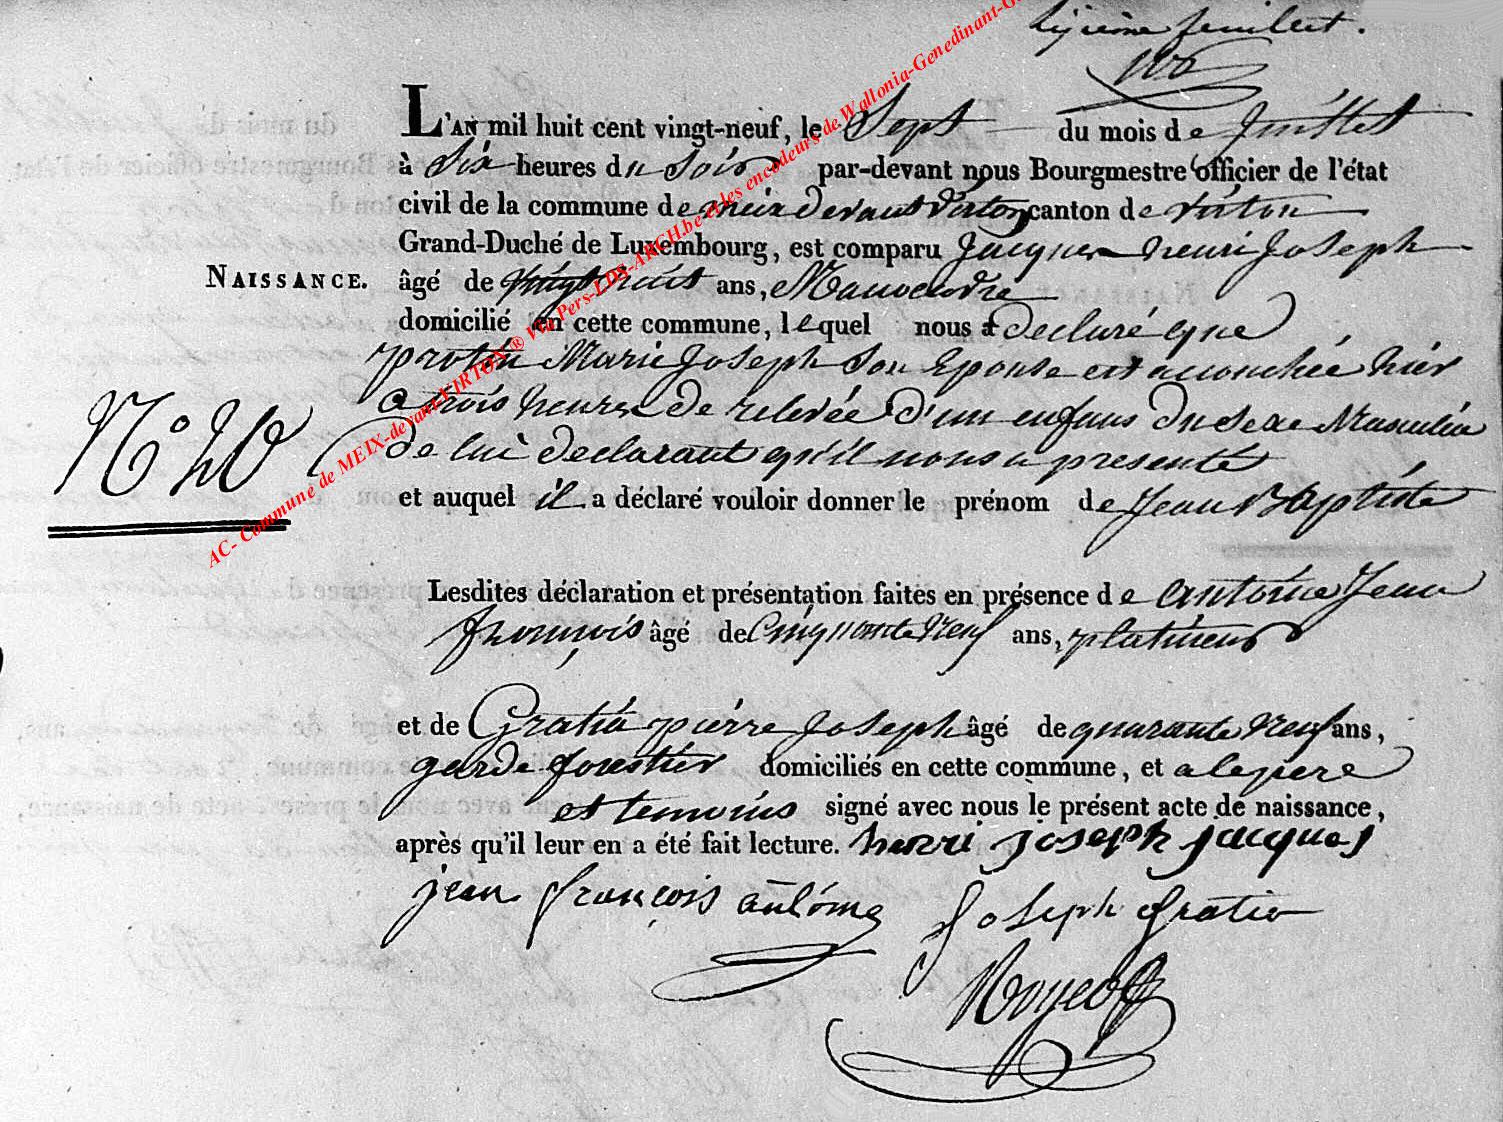 feuillet.
L'AN mil huit cent vingt-neuf, le Sept du mois de Juillet
à Six heures du Soir par-devant nous Bourgmestre officier de l'état
civil de la commune de meix devant Virton canton de virton
Grand-Duché de Luxembourg, est comparu Jacques henri Joseph
NAISSANCE. âgé de vingt huit ans, Manoeuvre
domicilié en cette commune, lequel nous a declaré que
protin Marie Joseph Son Epouse est accouchée hier
a trois heures de relevée d'un enfant du Sexe Masculin
N° 20 de lui declarant qu'il nous a presenté
et auquel il a déclaré vouloir donner le prénom de Jean Baptiste
Lesdites déclaration et présentation faites en présence de antoine Jean
françois âgé de Cinquante Neuf ans, platineur
et de Gratia pierre Joseph âgé de quarante Neuf ans,
garde forestier domiciliés en cette commune, et a le pere
et temoins signé avec nous le présent acte de naissance,
après qu'il leur en a été fait lecture. henri joseph jacques
jean françois antoine Joseph Gratia
AC- Commune de MEIX-devant-VIRTON ® Via Pers-LDS-ARCH.be et les encodeurs de Wallonia-Genedinant-G